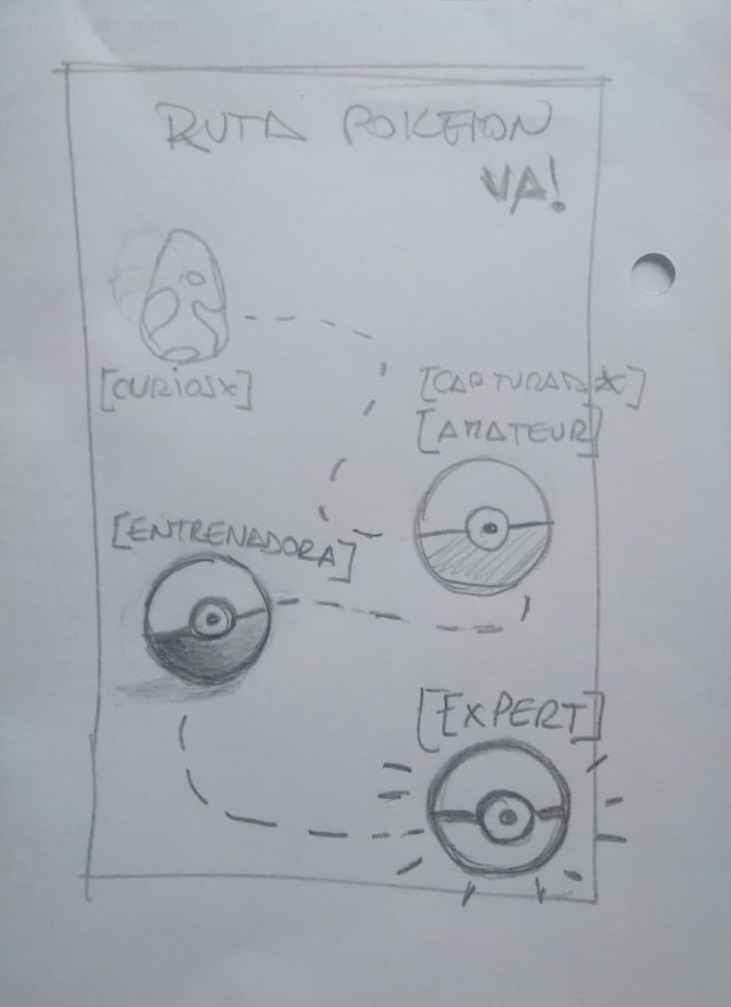 RUTA POKEMON
VA!
[CURIOSX]
[AMATEUR]
[ENTRENADORA]
[EXPERT]